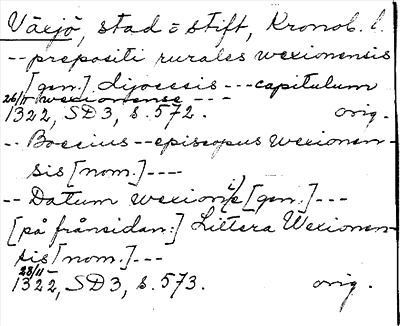 Växjö, stad = stift, Kronob. l.
-- prepositi rurales wexionensis
[gen.] dijocesis --- capitulum
wexionense ---
26/11 1322, SD3, s. 572. orig.
-- Boecius -- episcopus wexionen-
sis [nom.] ----
-- Datum wexion(i)e [gen.] ---
[på frånsidan:] Littera Wexionen-
sis [nom.] ---
28/11 1322, SD3, s. 573. orig.